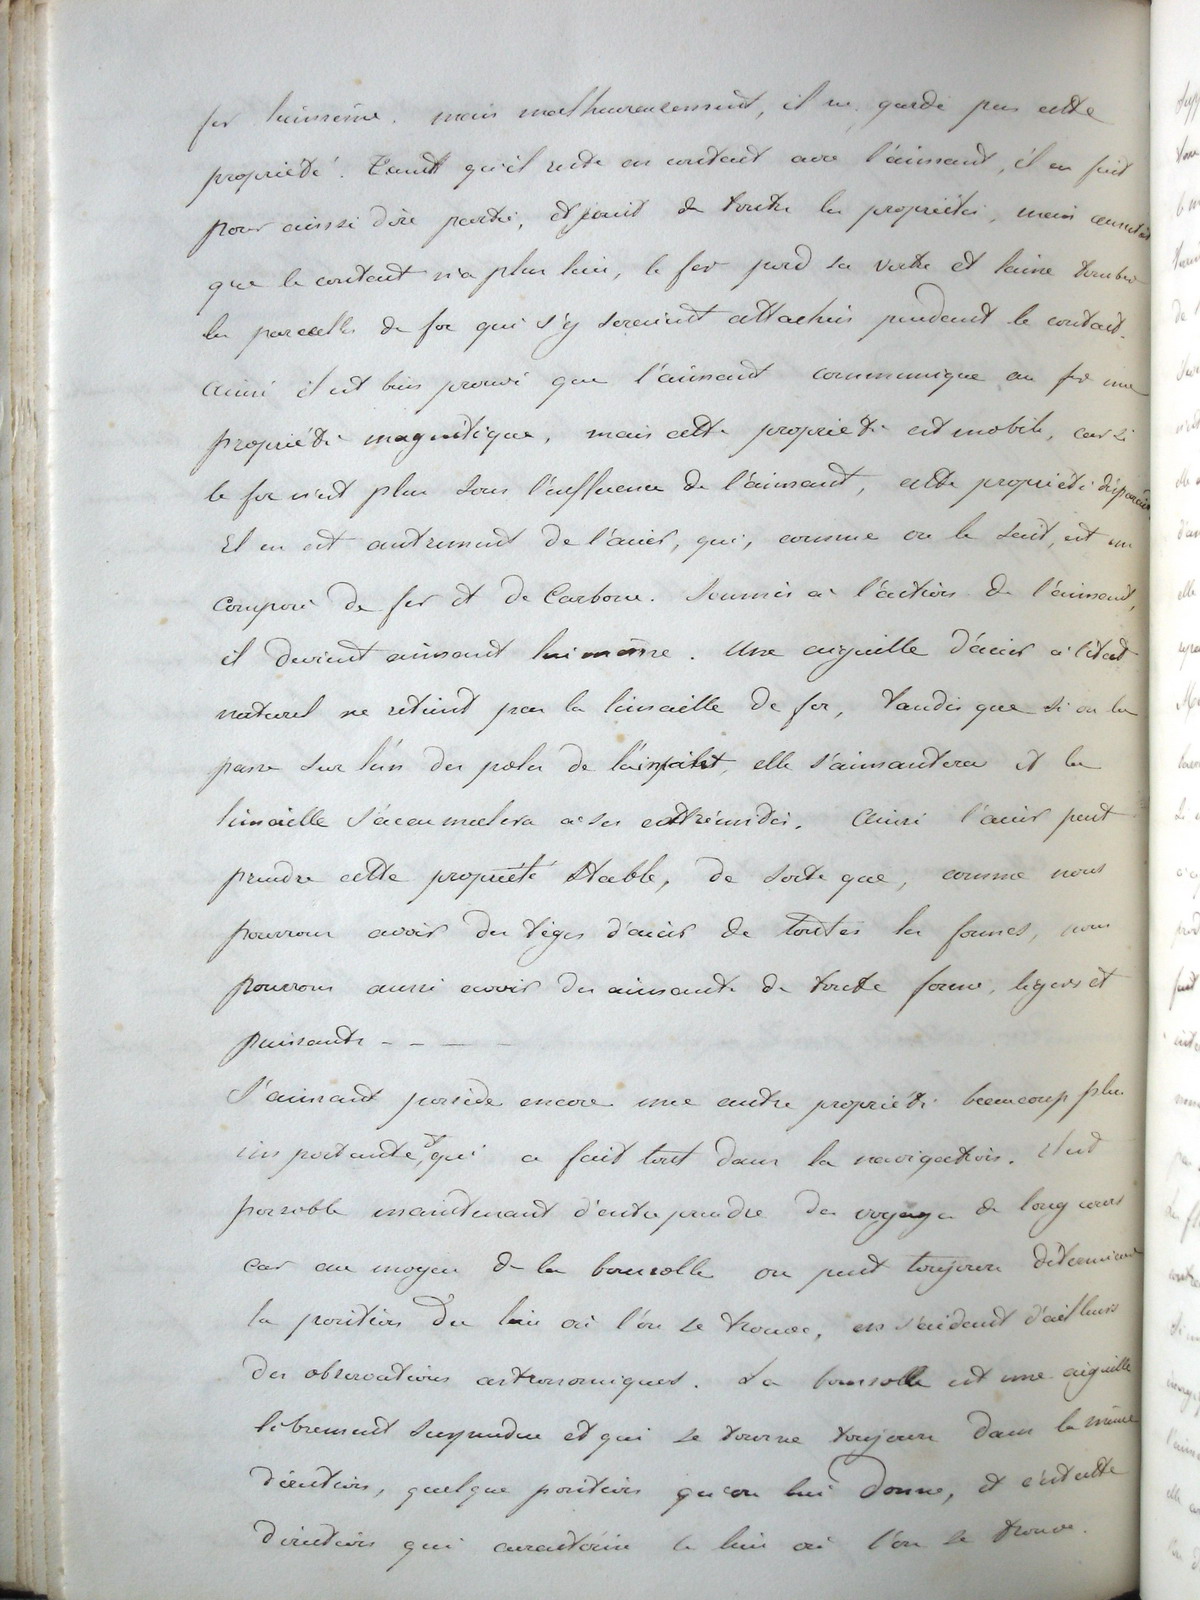 fer lui même. mais malheureusement, il ne garde pas cette
propriété. Tant qu'il reste en contact avec l'aimant, il en fait
pour ainsi dire partie, et jouit de toutes les propriétés, mais aussitôt
que le contact n'a plus lieu, le fer perd sa vertu et laisse tomber
les parcelles de fer qui s'y seraient attachés pendant le contact.
Ainsi il est bien prouvé que l'aimant communique au fer une
propriété magnétique, mais cette propriété est mobile, car si
le fer n'est plus sous l'influence de l'aimant, cette propriété disparait
Il en est autrement de l'acier, qui, comme on le sait, est un
composé de fer et de Carbone. Soumis à l'action de l'aimant,
il devient aimant lui même. Une aiguille d'acier à l'état
naturel ne retient pas la limaille de fer, tandis que si on la
passe sur l'un des poles de l'aimant, elle s'aimantera et la
limaille s'accumulera à ses extrémités. Ainsi l'acier peut
prendre cette propriété stable, de sorte que, comme nous
pouvons avoir des tiges d'acier de toutes les formes, nous
pouvons aussi avoir des aimants de toute forme, légers et
puissants - - - -
L'aimant possède encore une autre propriété beaucoup plus
importante, et qui a fait tout dans la navigation. Il est
possible maintenant d'entreprendre des voyages de long cours
car au moyen de la boussolle on peut toujours déterminer
la position du lieu où l'on se trouve, en s'aidant d'ailleurs
des observations astronomiques. La boussolle est une aiguille
librement suspendue et qui se tourne toujours dans la même
direction, quelque position qu'on lui donne, et c'est cette
direction qui caractérise le lieu où l'on se trouve.